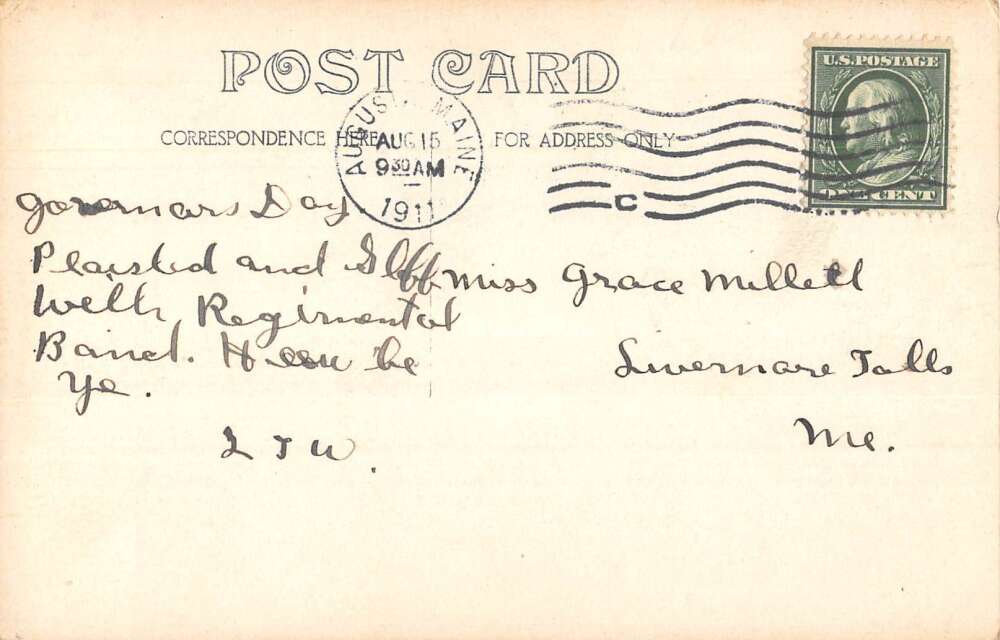 POST CARD
CORRESPONDENCE HERE
FOR ADDRESS ONLY
AUGUSTA, MAINE
AUG 15
9 30 AM
1911
C
U.S. POSTAGE
ONE CENT
Governors Day.
Plaisted and Staff
With Regimental
Band. How be
Ye.
L T W.
Miss Grace Millett
Livermore Falls
Me.